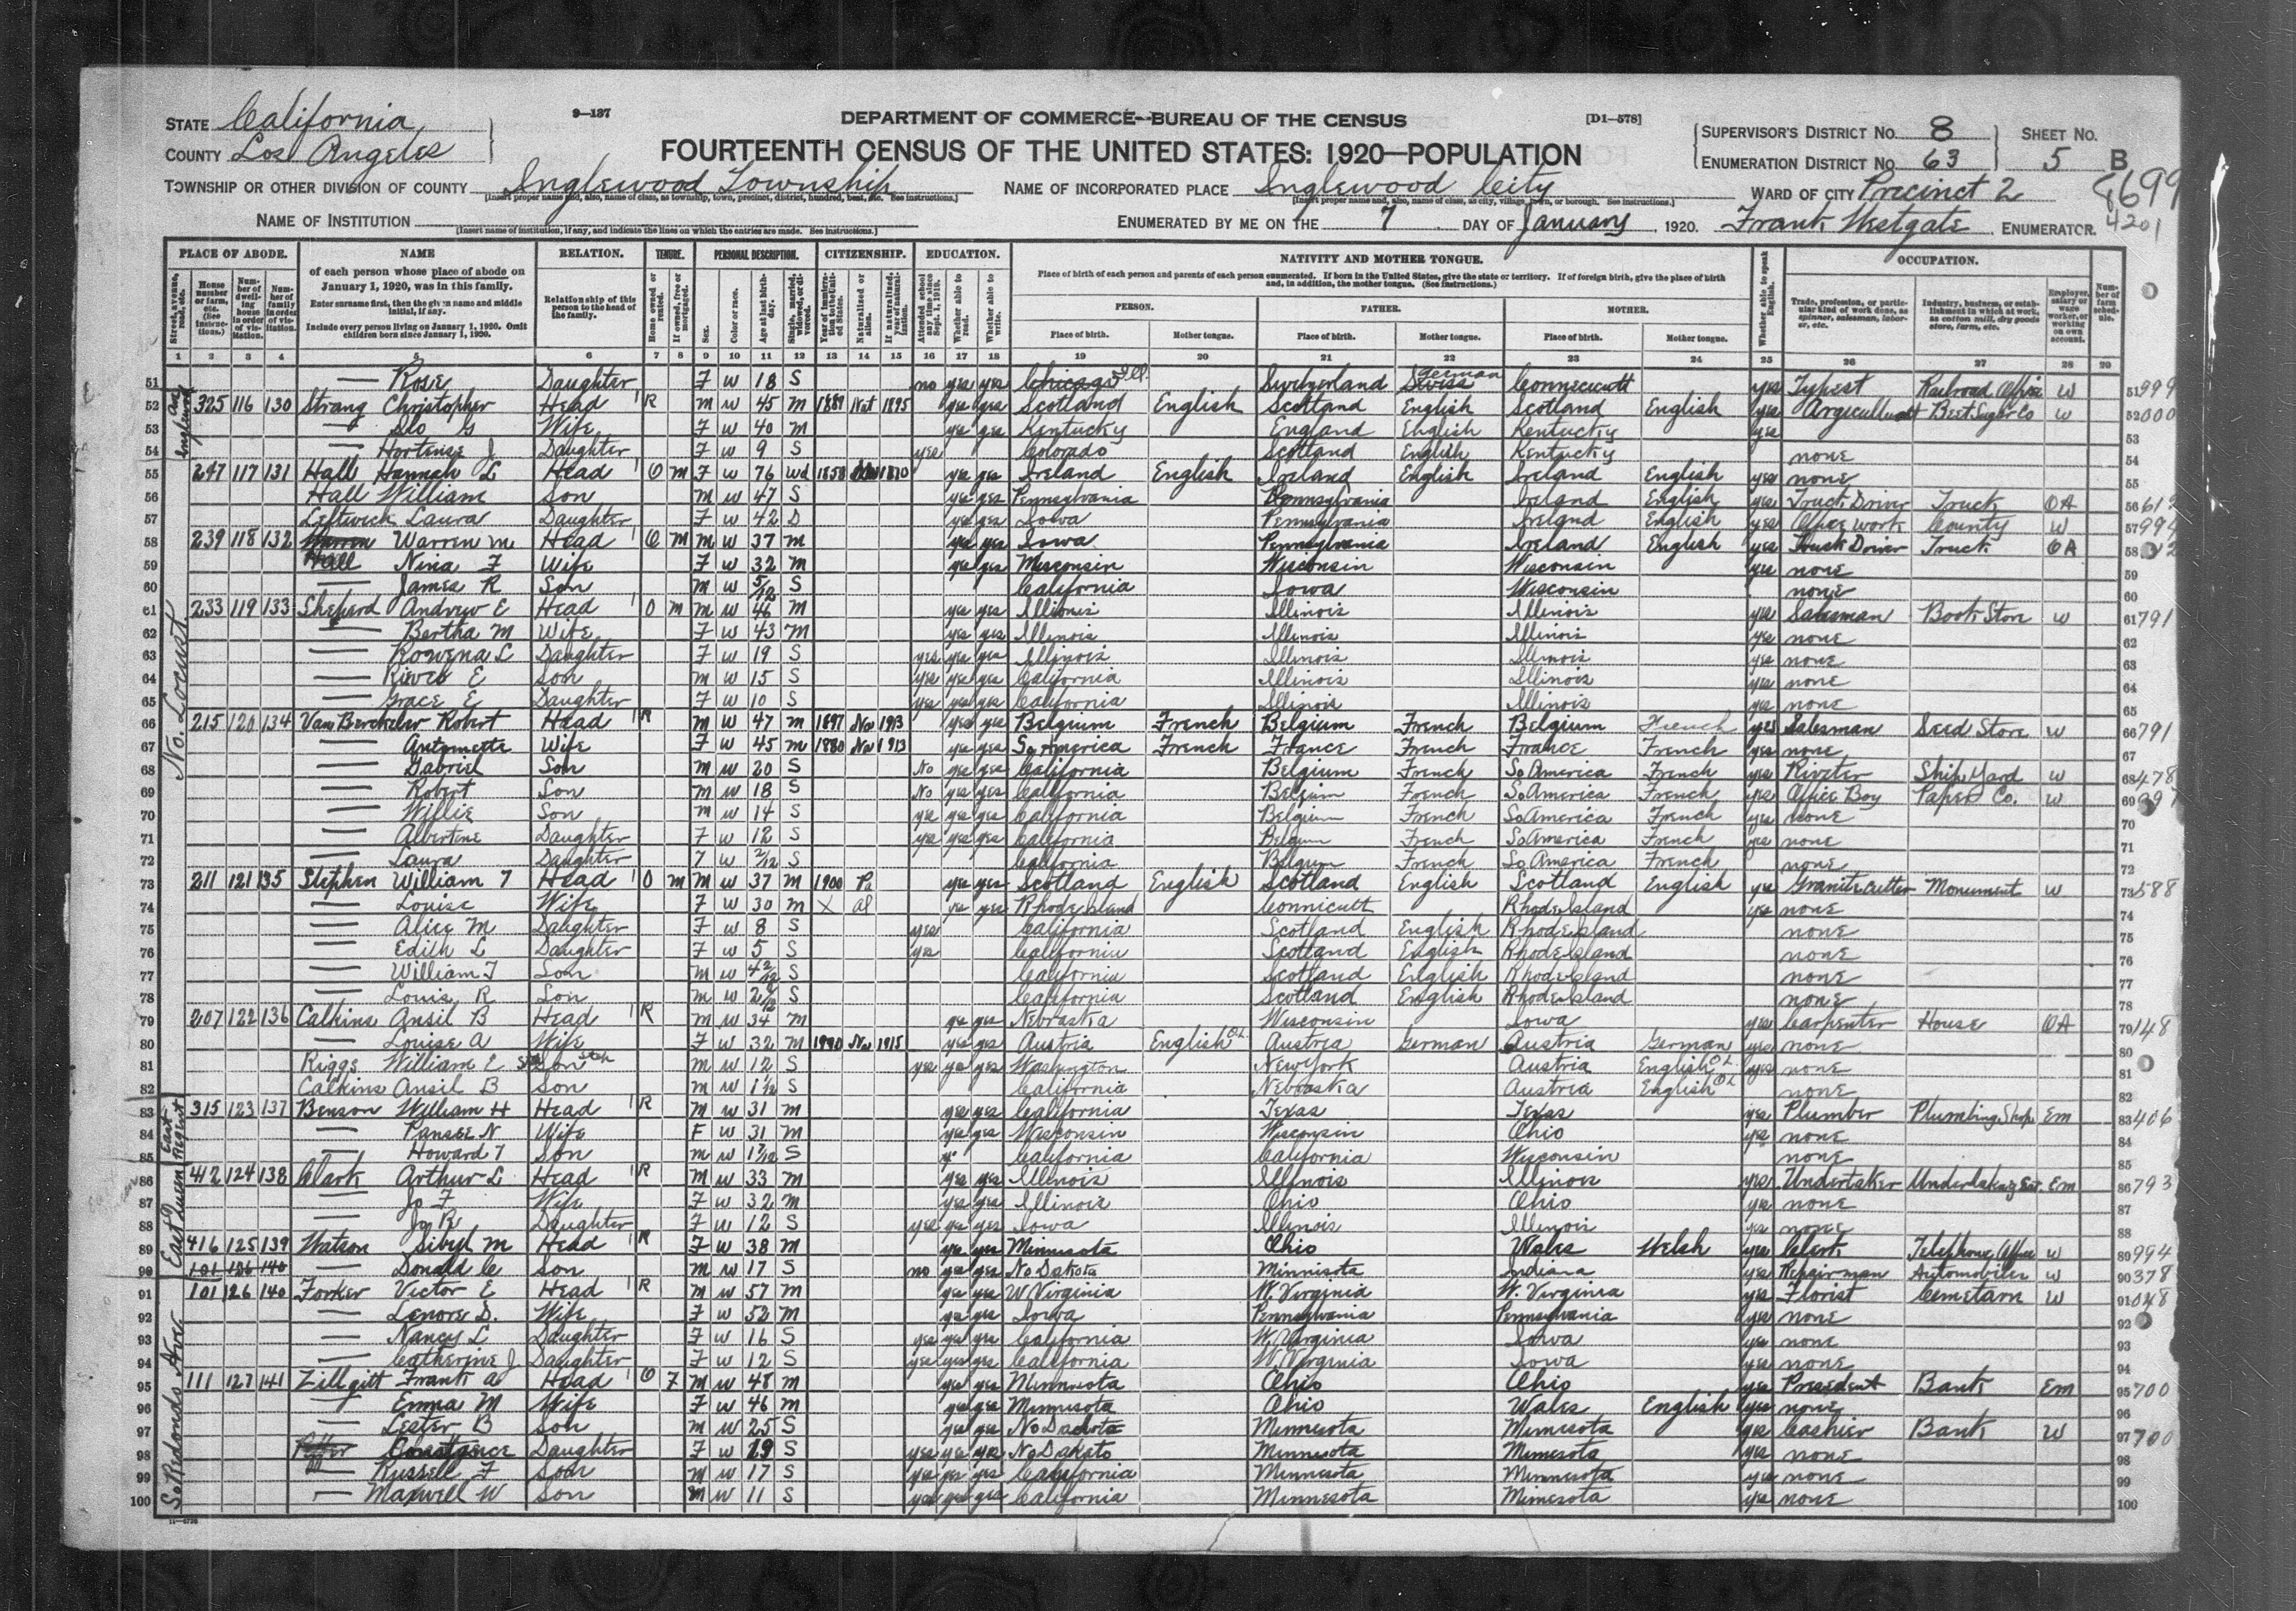 9—137
DEPARTMENT OF COMMERCE—BUREAU OF THE CENSUS
[D1—578]
FOURTEENTH CENSUS OF THE UNITED STATES: 1920—POPULATION
STATE California
COUNTY Los Angeles
SUPERVISOR'S DISTRICT No. 8
ENUMERATION DISTRICT No. 63
SHEET No. 5 B
8699
4201
TOWNSHIP OR OTHER DIVISION OF COUNTY Inglewood Township
NAME OF INCORPORATED PLACE Inglewood City
WARD OF CITY Precinct 2
NAME OF INSTITUTION
[Insert name of institution, if any, and indicate the lines on which the entries are made. See instructions.]
ENUMERATED BY ME ON THE 7 DAY OF January, 1920. Frank Westgate, ENUMERATOR.
PLACE OF ABODE. NAME RELATION. TENURE. PERSONAL DESCRIPTION. CITIZENSHIP. EDUCATION. NATIVITY AND MOTHER TONGUE. OCCUPATION.
of each person whose place of abode on January 1, 1920, was in this family.
Enter surname first, then the given name and middle initial, if any.
Include every person living on January 1, 1920. Omit children born since January 1, 1920.
Relationship of this person to the head of the family.
Place of birth of each person and parents of each person enumerated. If born in the United States, give the state or territory. If of foreign birth, give the place of birth and, in addition, the mother tongue. (See instructions.)
PERSON. FATHER. MOTHER.
Place of birth. Mother tongue. Place of birth. Mother tongue. Place of birth. Mother tongue.
1 2 3 4 5 6 7 8 9 10 11 12 13 14 15 16 17 18 19 20 21 22 23 24 25 26 27 28 29
51 — Rose Daughter F W 18 S no yes yes Chicago Ill Switzerland Swiss German Connecticutt yes Typest Railroad Office W
52 325 116 130 Strang Christopher Head 1 R M W 45 M 1889 Nat 1895 yes yes Scotland English Scotland English Scotland English yes Beet Sugar Co W
53 — Wife F W 40 M yes yes Kentucky England English Kentucky yes
54 — Hortense J Daughter F W 9 S yes Colorado Scotland English Kentucky none
55 247 117 131 Hall Hannah L Head 1 O M F W 76 Wd 1858 1870 yes yes Ireland English Ireland English Ireland English yes none
56 Hall William Son M W 47 S yes yes Pennsylvania Pennsylvania Ireland English yes Truck Driver Truck OA
57 Leftwich Laura Daughter F W 42 D yes yes Iowa Pennsylvania Ireland English yes Office work County W
58 239 118 132 Warren M Head 1 O M M W 37 M yes yes Iowa Pennsylvania Ireland English yes Truck Driver Truck OA
59 Hall Nina F Wife F W 32 M yes yes Wisconsin Wisconsin Wisconsin yes none
60 — James R Son M W 5/12 S California Iowa Wisconsin none
61 233 119 133 Shepard Andrew E Head 1 O M M W 46 M yes yes Illinois Illinois Illinois yes Salesman Book Store W 791
62 — Bertha M Wife F W 43 M yes yes Illinois Illinois Illinois yes none
63 — Rowena L Daughter F W 19 S yes yes yes Illinois Illinois Illinois yes none
64 — E Son M W 15 S yes yes yes California Illinois Illinois yes none
65 — Grace E Daughter F W 10 S yes yes yes California Illinois Illinois yes none
66 215 120 134 Robert Head 1 R M W 47 M 1897 Na 1913 yes yes Belgium French Belgium French Belgium French yes Salesman Seed Store W 791
67 — Antonette Wife F W 45 M 1880 Na 1913 yes yes So America French France French France French yes none
68 — Gabriel Son M W 20 S No yes yes California Belgium French So America French yes Riveter Ship Yard W 478
69 — Robert Son M W 18 S No yes yes California Belgium French So America French yes Office Boy Paper Co. W
70 — Willie Son M W 14 S yes yes yes California Belgium French So America French yes none
71 — Albertine Daughter F W 12 S yes yes yes California Belgium French So America French yes none
72 — Laura Daughter F W 2/12 S California Belgium French So America French none
73 211 121 135 Stephen William T Head 1 O M M W 37 M 1900 Pa yes yes Scotland English Scotland English Scotland English yes Granite cutter Monument W 588
74 — Louise Wife F W 30 M X al yes yes Rhode Island Connicutt Rhode Island yes none
75 — Alice M Daughter F W 8 S yes California Scotland English Rhode Island none
76 — Edith L Daughter F W 5 S yes California Scotland English Rhode Island none
77 — William T Son M W 4 2/12 S California Scotland English Rhode Island none
78 — Louis R Son M W S California Scotland English Rhode Island none
79 207 122 136 Calkins Ansil B Head 1 R M W 34 M yes yes Nebraska Wisconsin Iowa yes Carpenter House OA 148
80 — Louise A Wife F W 32 M 1990 Na 1915 yes yes Austria English Austria German Austria German yes none
81 Riggs William E Son M W 12 S yes yes yes Washington New York Austria English yes none
82 Calkins Ansil B Son M W S California Nebraska Austria English none
83 315 123 137 Benson William H Head 1 R M W 31 M yes yes California Texas Texas yes Plumber Plumbing Shop Em 406
84 — Pansee N Wife F W 31 M yes yes Wisconsin Wisconsin Ohio yes none
85 — Howard T Son M W S California California Wisconsin none
86 412 124 138 Clark Arthur L Head 1 R M W 33 M yes yes Illinois Illinois Illinois yes Undertaker Undertaking Est. Em 793
87 — Jo F Wife F W 32 M yes yes Illinois Ohio Ohio yes none
88 — Jo R Daughter F W 12 S yes yes yes Iowa Illinois Illinois yes none
89 416 125 139 Watson Sibyl M Head 1 R F W 38 M yes yes Minnesota Ohio Wales Welsh yes Clerk Telephone Office W 994
90 101 126 140 — Donald C Son M W 17 S no yes yes No Dakota Minnista Indiana yes Repair man Automobiles W 378
91 101 126 140 Forker Victor E Head 1 R M W 57 M yes yes W Virginia W. Virginia W. Virginia yes Florist Cemetarn W 048
92 — Lenore D. Wife F W 52 M yes yes Iowa Pennsylvania Pennsylvania yes none
93 — Nancy L Daughter F W 16 S yes yes yes California W. Virginia Iowa yes none
94 — Catherine J. Daughter F W 12 S yes yes yes California W. Virginia Iowa yes none
95 111 127 141 Zillgitt Frank A Head 1 O F M W 48 M yes yes Minnesota Ohio Ohio yes President Bank Em 700
96 — Emma M Wife F W 46 M yes yes Minnesota Ohio Wales English yes none
97 — Lester B Son M W 25 S yes yes No Dakota Minnesota Minnesota yes Cashier Bank W 700
98 Constance Daughter F W 19 S yes yes yes No Dakota Minnesota Minnesota yes none
99 — Russell F Son M W 17 S yes yes yes California Minnesota Minnesota yes none
100 — Maxwell W Son M W 11 S yes yes yes California Minnesota Minnesota yes none
No. Locust
East Regent
East Queen
So. Redondo Ave.